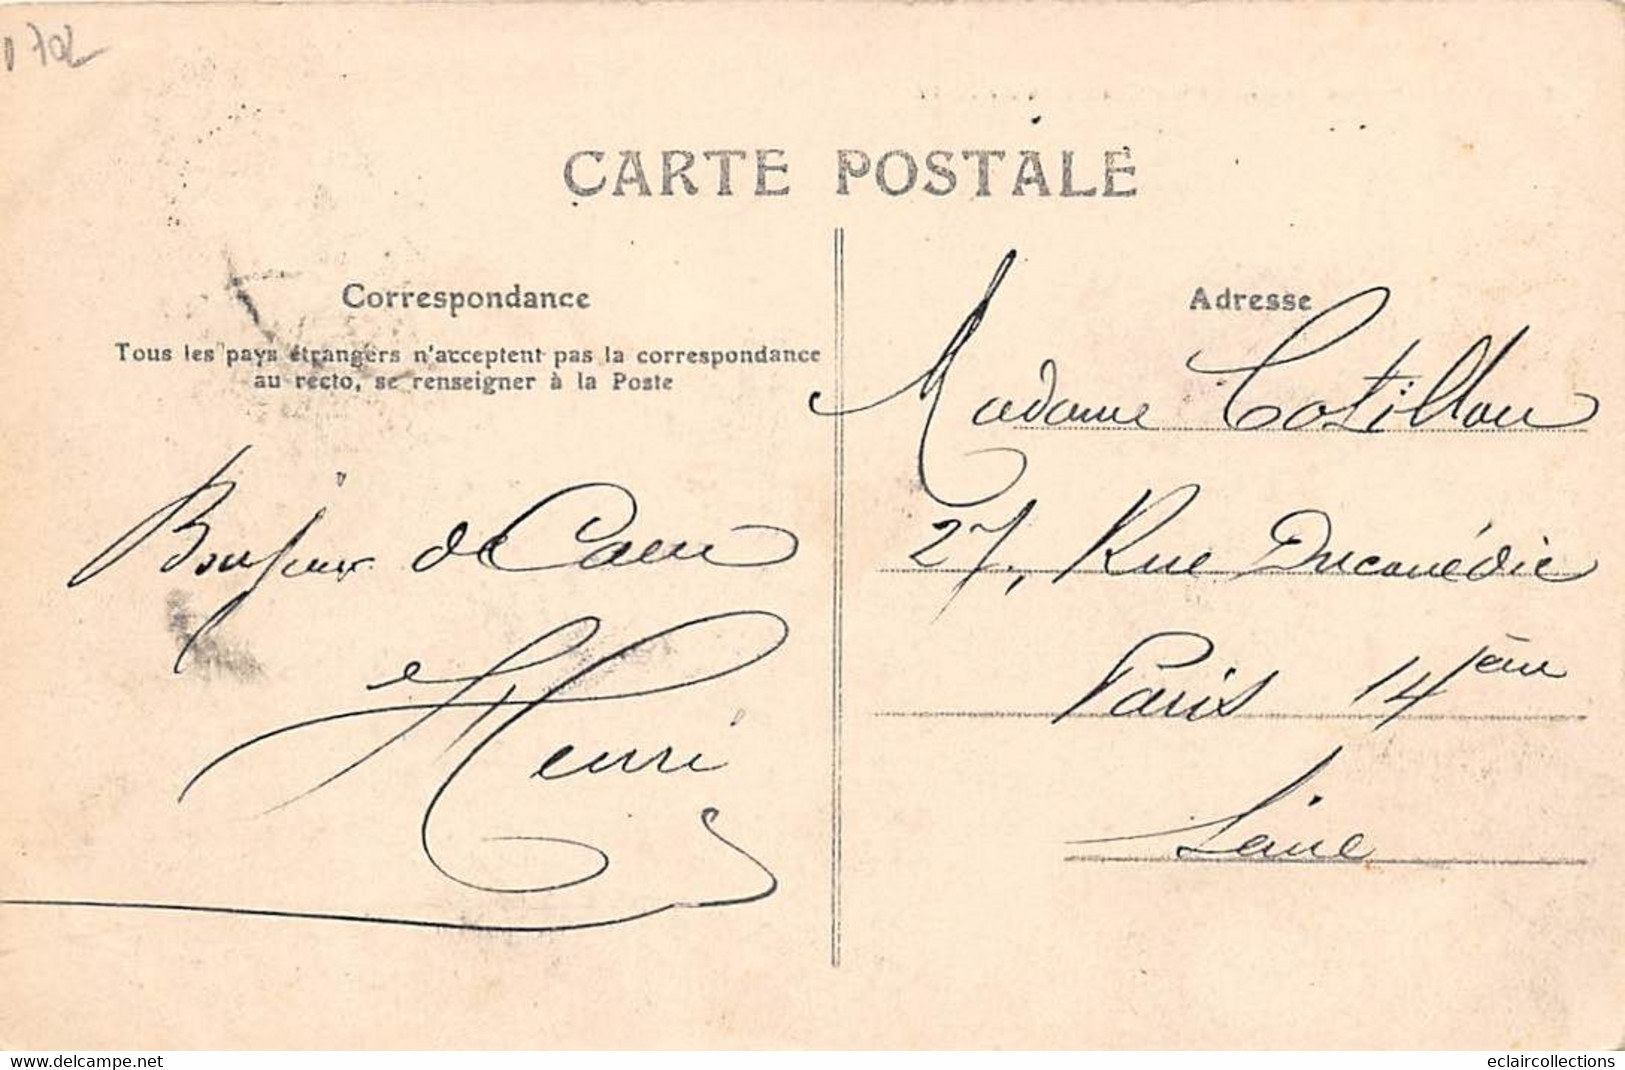 CARTE POSTALE
Correspondance
Tous les pays étrangers n'acceptent pas la correspondance
au recto, se renseigner à la Poste
Bonjour de Caen
Henri
Adresse
Madame Cotillon
27, Rue Ducouëdic
Paris 14ème
Seine
www.delcampe.net
eclaircollections